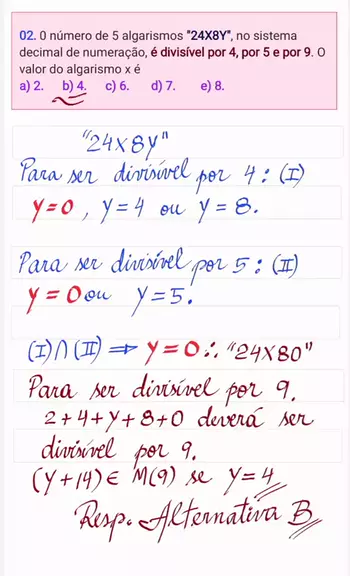 02. O número de 5 algarismos "24X8Y", no sistema
decimal de numeração, é divisível por 4, por 5 e por 9. O
valor do algarismo x é
a) 2. b) 4. c) 6. d) 7. e) 8.
"24X8Y"
Para ser divisível por 4: (I)
Y=0, Y=4 ou Y=8.
Para ser divisível por 5: (II)
Y=0 ou Y=5.
(I)∩(II) ⇒ Y=0 ∴ "24X80"
Para ser divisível por 9.
2+4+Y+8+0 deverá ser
divisível por 9.
(Y+14)∈ M(9) se Y=4
Resp. Alternativa B